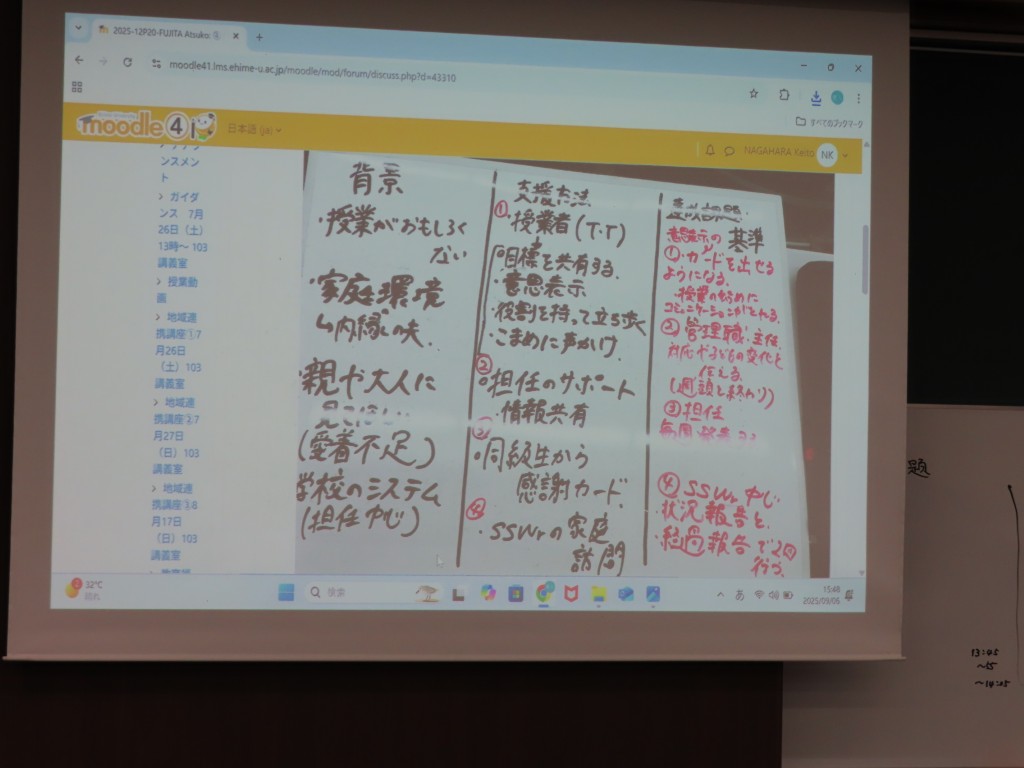 2025-12P20-FUJITA Atsuko:
moodle41.lms.ehime-u.ac.jp/moodle/mod/forum/discuss.php?d=43310
すべてのブックマーク
moodle 41
日本語 (ja)
NAGAHARA Kaito NK
ンスメン
ト
ガイダ
ンス 7月
26日（土）
13時～ 103
講義室
授業動
画
地域連
携講座①7
月26日
（土）103
講義室
地域連
携講座②7
月27日
（日）103
講義室
地域連
携講座③8
月17日
（日）103
講義室
背景
・授業がおもしろく
ない
・家庭環境
内縁の夫
・親や大人に
見てほしい
(愛着不足)
学校のシステム
(担任中心)
支援方法
① 授業者(T・T)
目標を共有する。
・意思表示
・役割を持って立ち歩く
・こまめに声かけ
②
担任のサポート
情報共有
③
同級生から
感謝カード
④
・SSWrの家庭
訪問
意思表示の 基準
①・カードを出せる
ようになる。
・授業の始めに
コミュニケーションがとれる。
② 管理職・主任
対応や子どもの変化を
伝える
(週頭と終わり)
③ 担任
④ SSWr 中心
状況報告を、
経過報告で2回
行う。
32℃
晴れ
検索
あ
15:48
2025/09/06
題
13:45
～15
～14:05